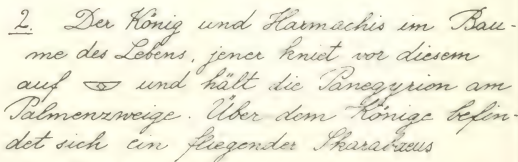 2. Der König und Harmachis im Bau-
me des Lebens, jener kniet vor diesem
auf und hält die Panegyrion am
Palmenzweige. Über dem Könige befin-
det sich ein fliegender Skarabaeus